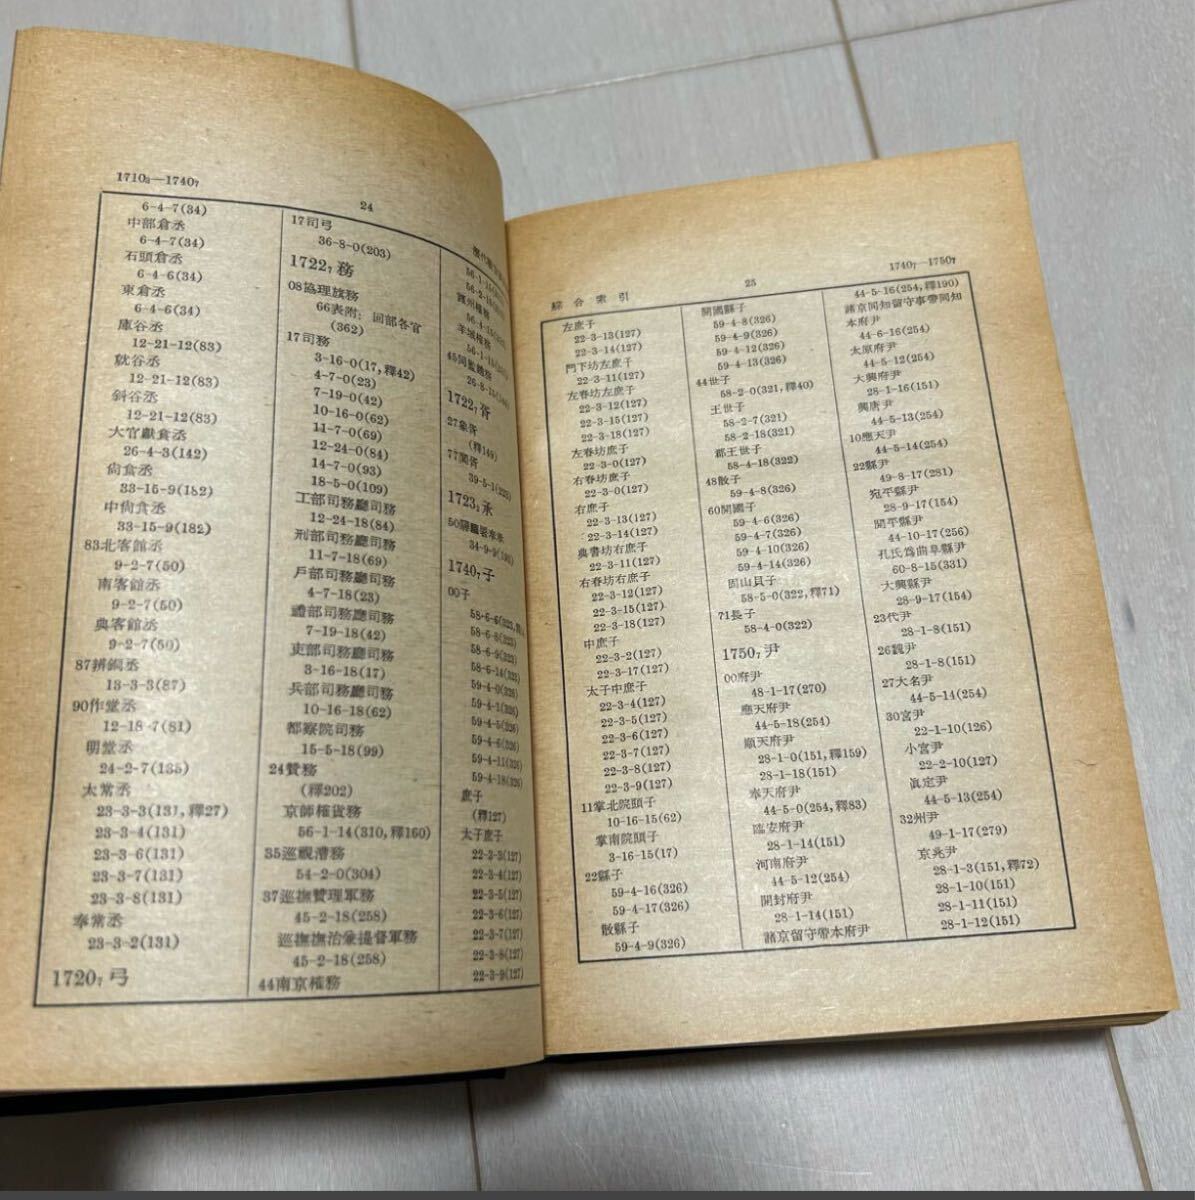 1710₃—1740₇
24
6-4-7(34)
中部倉丞
6-4-7(34)
石頭倉丞
6-4-6(34)
東倉丞
6-4-6(34)
庫谷丞
12-21-12(83)
就谷丞
12-21-12(83)
斜谷丞
12-21-12(83)
大官獻食丞
26-4-3(142)
尙食丞
33-15-9(182)
中尙食丞
33-15-9(182)
83北客館丞
9-2-7(50)
南客館丞
9-2-7(50)
典客館丞
9-2-7(50)
87辨銅丞
13-3-3(87)
90作堂丞
12-18-7(81)
明堂丞
24-2-7(135)
太常丞
23-3-3(131,釋27)
23-3-4(131)
23-3-6(131)
23-3-7(131)
23-3-8(131)
奉常丞
23-3-2(131)
1720₇弓
17司弓
36-8-0(203)
1722₇務
08協理旗務
66表附:回部各官
(362)
17司務
3-16-0(17,釋42)
4-7-0(23)
7-19-0(42)
10-16-0(62)
11-7-0(69)
12-24-0(84)
14-7-0(93)
18-5-0(109)
工部司務廳司務
12-24-18(84)
刑部司務廳司務
11-7-18(69)
戶部司務廳司務
4-7-18(23)
禮部司務廳司務
7-19-18(42)
吏部司務廳司務
3-16-18(17)
兵部司務廳司務
10-16-18(62)
都察院司務
15-5-18(99)
24贊務
(釋202)
京師榷貨務
56-1-14(310,釋160)
35巡視漕務
54-2-0(304)
37巡撫贊理軍務
45-2-18(258)
巡撫撫治兼提督軍務
45-2-18(258)
44南京榷務
歷代職官
56-1-15
56-2-18
56-4-15
56-1-15
26-8-15
1722₇胥
27象胥
(釋149)
77閽胥
39-5-1
1723₂承
34-9-9
1740₇子
00子
58-6-6(323,
58-6-8(323)
58-6-9(323)
58-6-14(323)
59-4-0(326)
59-4-1(326)
59-4-5(326)
59-4-6(326)
59-4-11(326)
59-4-18(326)
庶子
(釋127)
太子庶子
22-3-3(127)
22-3-4(127)
22-3-5(127)
22-3-6(127)
22-3-7(127)
22-3-8(127)
22-3-9(127)
綜合索引
25
1740₇—1750₇
左庶子
22-3-13(127)
22-3-14(127)
門下坊左庶子
22-3-11(127)
左春坊左庶子
22-3-12(127)
22-3-15(127)
22-3-18(127)
左春坊庶子
22-3-0(127)
右春坊庶子
22-3-0(127)
右庶子
22-3-13(127)
22-3-14(127)
典書坊右庶子
22-3-11(127)
右春坊右庶子
22-3-12(127)
22-3-15(127)
22-3-18(127)
中庶子
22-3-2(127)
22-3-17(127)
太子中庶子
22-3-4(127)
22-3-5(127)
22-3-6(127)
22-3-7(127)
22-3-8(127)
22-3-9(127)
11掌北院頭子
10-16-15(62)
掌南院頭子
3-16-15(17)
22縣子
59-4-16(326)
59-4-17(326)
散縣子
59-4-9(326)
開國縣子
59-4-8(326)
59-4-9(326)
59-4-12(326)
59-4-13(326)
44世子
58-2-0(321,釋40)
王世子
58-2-7(321)
58-2-18(321)
郡王世子
58-4-18(322)
48散子
59-4-8(326)
60開國子
59-4-6(326)
59-4-7(326)
59-4-10(326)
59-4-14(326)
固山貝子
58-5-0(322,釋71)
71長子
58-4-0(322)
1750₇尹
00府尹
48-1-17(270)
應天府尹
44-5-18(254)
順天府尹
28-1-0(151,釋159)
28-1-18(151)
奉天府尹
44-5-0(254,釋83)
臨安府尹
28-1-14(151)
河南府尹
44-5-12(254)
開封府尹
28-1-14(151)
諸京留守帶本府尹
44-5-16(254,釋190)
諸京同知留守事帶同知
本府尹
44-6-16(254)
太原府尹
44-5-12(254)
大興府尹
28-1-16(151)
興唐尹
44-5-13(254)
10應天尹
44-5-14(254)
22縣尹
49-8-17(281)
宛平縣尹
28-9-17(154)
開平縣尹
44-10-17(256)
孔氏爲曲阜縣尹
60-8-15(331)
大興縣尹
28-9-17(154)
23代尹
28-1-8(151)
26魏尹
28-1-8(151)
27大名尹
44-5-14(254)
30宮尹
22-1-10(126)
小宮尹
22-2-10(127)
滇定尹
44-5-13(254)
32州尹
49-1-17(279)
京兆尹
28-1-3(151,釋72)
28-1-10(151)
28-1-11(151)
28-1-12(151)